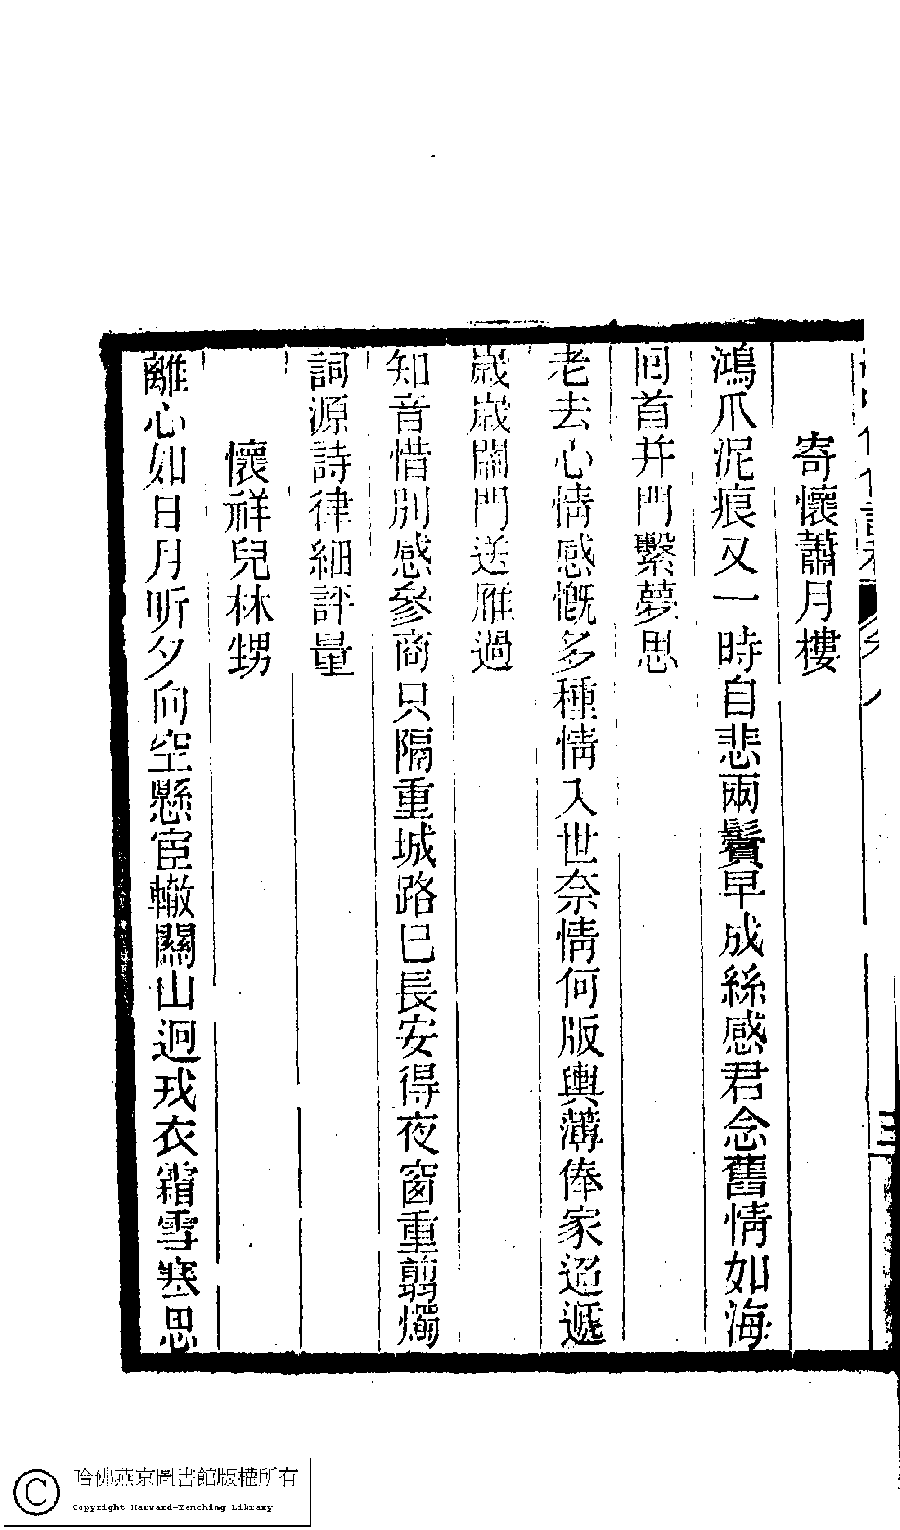 寄懷蕭月樓
鴻爪泥痕又一時自悲兩鬢早成絲感君念舊情如海
回首并門繫夢思
老去心情感慨多種情入世奈情何版輿薄俸家迢遞
歲歲關門送雁過
知音惜別感參商只隔重城路已長安得夜窗重翦燭
詞源詩律細評量
懷祥兒林甥
離心如日月昕夕向空懸宦轍關山迥戎衣霜雪寒思
哈佛燕京圖書館版權所有
Copyright Harvard-Yenching Library